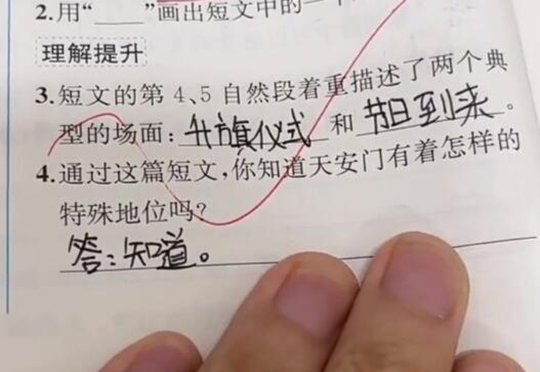 2.用“____”画出短文中的一
理解提升
3.短文的第4、5自然段着重描述了两个典
型的场面:升旗仪式和节日到来。
4.通过这篇短文,你知道天安门有着怎样的
特殊地位吗?
答:知道。